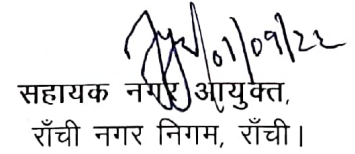 01/09/22
सहायक नगर आयुक्त,
राँची नगर निगम, राँची।